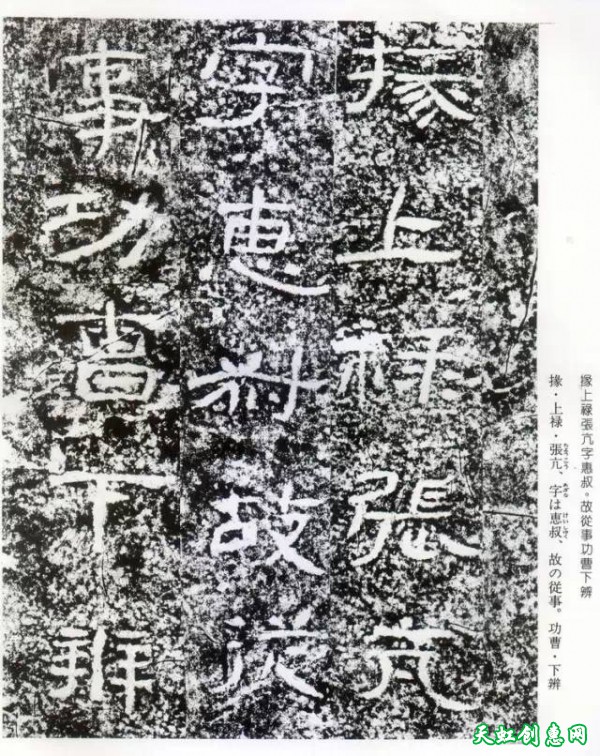 掾上祿張亢
字惠叔故從
事功曹下辨
掾上祿張亢字惠叔。故從事功曹下辨
掾・上禄・張亢、字は恵叔、故の従事。功曹・下辨
天虹创惠网